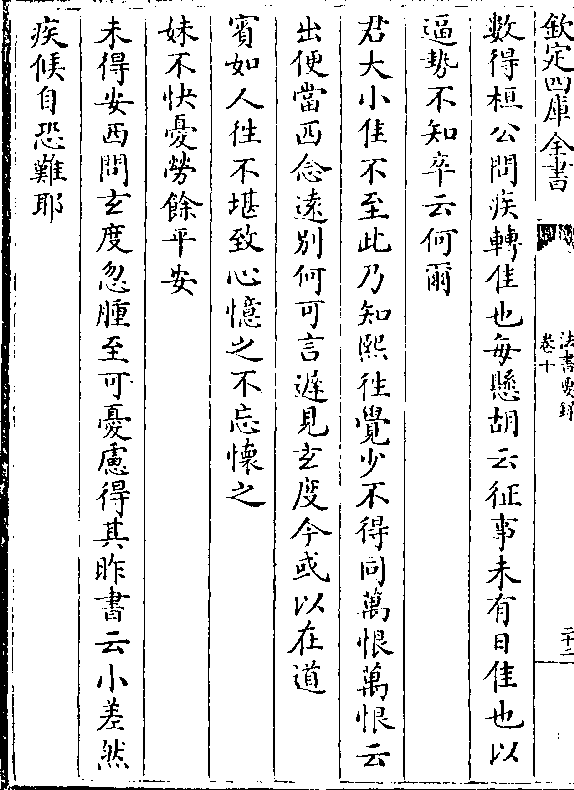 欽定四庫全書
法書要録
卷十
二十二
數得桓公問疾轉佳也每懸胡云征事未有日佳也以
逼勢不知卒云何爾
君大小佳不至此乃知熙往覺少不得同萬恨萬恨云
出便當西念遠別何可言遲見玄度今或以在道
賓如人往不堪致心憶之不忘懷之
妹不快憂勞餘平安
未得安西問玄度忽腫至可憂慮得其昨書云小差然
疾候自恐難耶